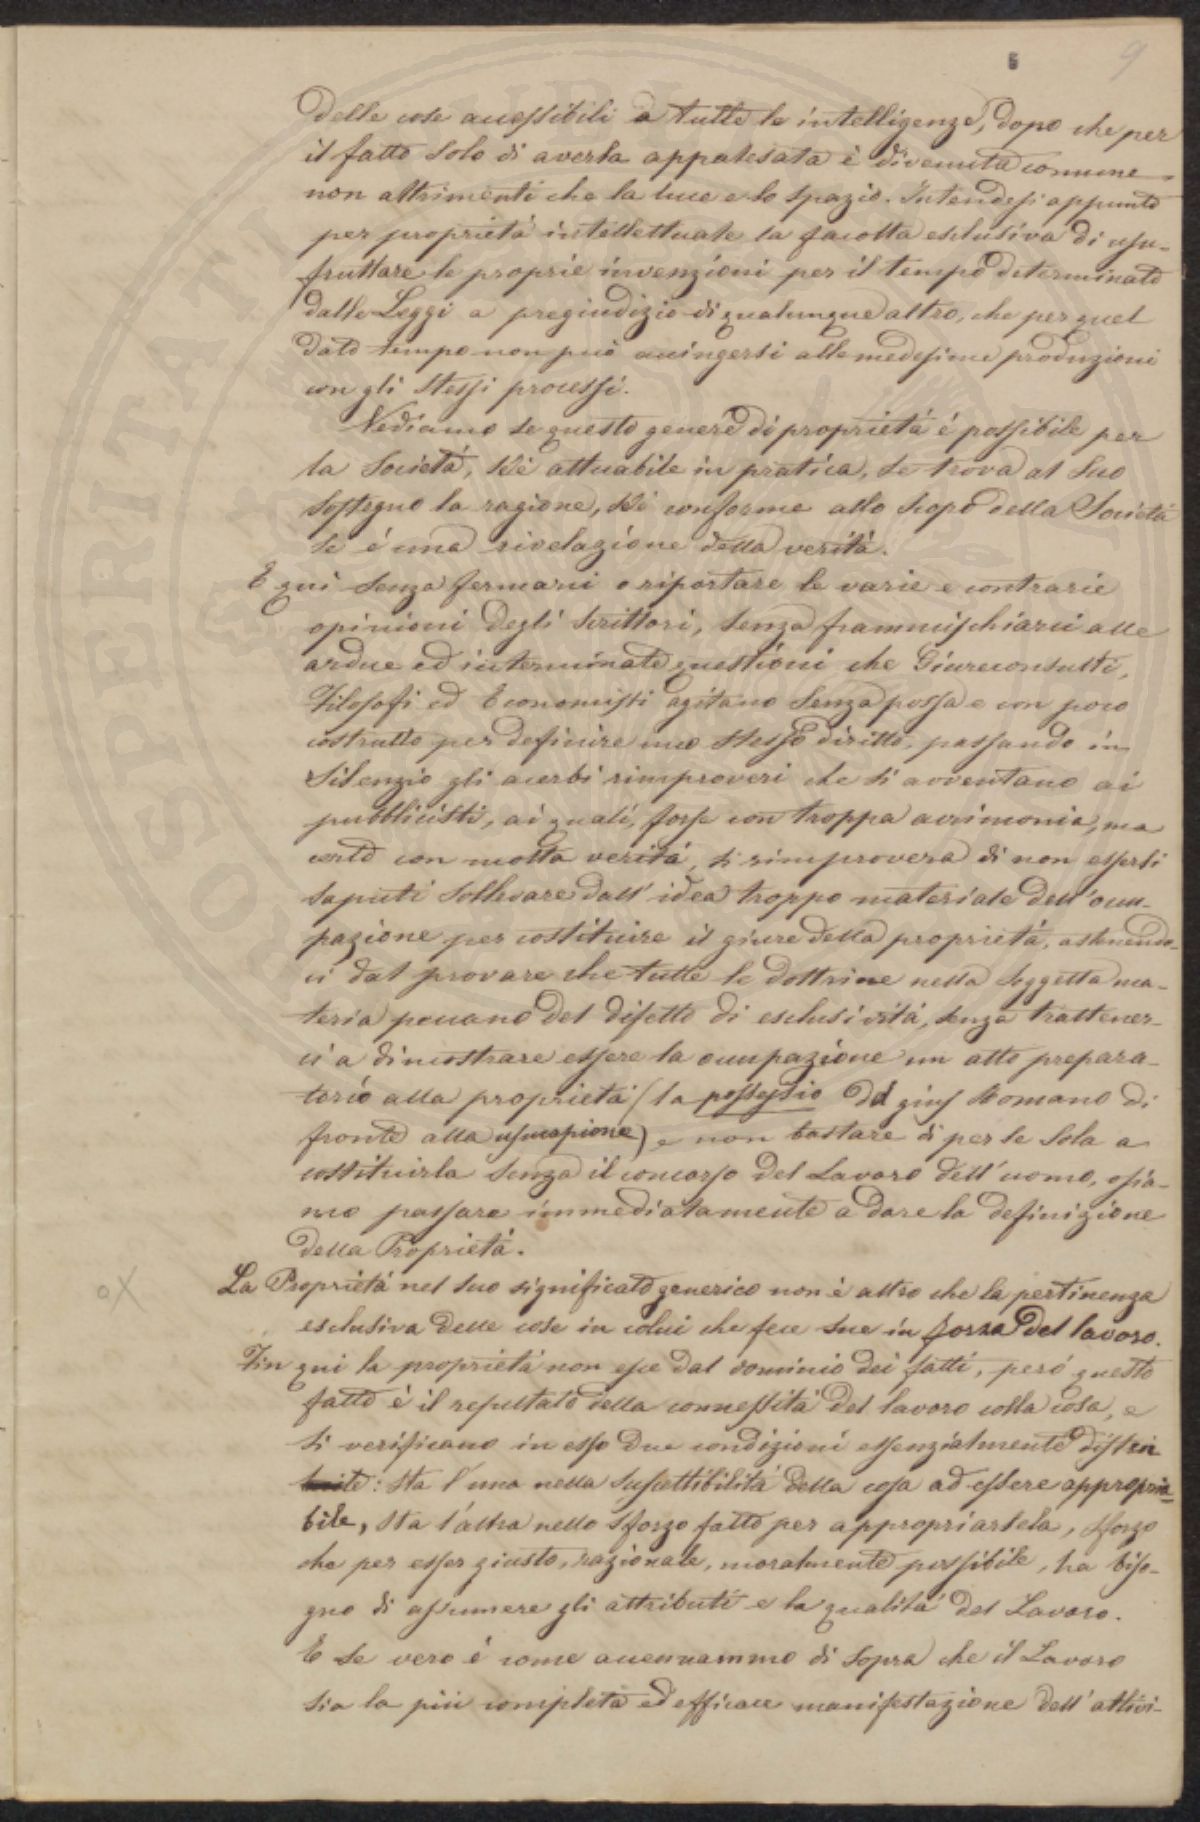 9
delle cose accessibili a tutte le intelligenze, dopo che per
il fatto solo di averla appalesata è divenuta comune
non altrimenti che la luce e lo spazio. Intendesi appunto
per proprietà intellettuale la facoltà esclusiva di usu-
fruttare le proprie invenzioni per il tempo determinato
dalle Leggi a pregiudizio di qualunque altro, che per quel
dato tempo non può accingersi alle medesime produzioni
con gli stessi processi.
Vediamo se questo genere di proprietà è possibile per
la Società, se è attuabile in pratica, se trova al suo
sostegno la ragione, se è conforme allo scopo della Società
se è una rivelazione della verità.
E qui senza fermarci o riportare le varie e contrarie
opinioni degli scrittori, senza frammischiarci alle
ardue ed interminate questioni che Giureconsulti,
Filosofi ed Economisti agitano senza possa e con poco
costrutto per definire uno stesso diritto, passando in
silenzio gli acerbi rimproveri che si avventano ai
pubblicisti, ai quali, forse con troppa acrimonia, ma
certo con molta verità, si rimprovera di non essersi
saputi sollevare dall'idea troppo materiale dell'occu-
pazione per costituire il giure della proprietà, astenendo-
ci dal provare che tutte le dottrine nella soggetta ma-
teria peccano del difetto di esclusività, senza trattener-
ci a dimostrare essere la occupazione un atto prepara-
torio alla proprietà (la possessio del gius Romano di
fronte alla usucapione) e non bastare di per se sola a
costituirla senza il concorso del Lavoro dell'uomo, osia-
mo passare immediatamente a dare la definizione
della Proprietà.
oX
La Proprietà nel suo significato generico non è altro che la pertinenza
esclusiva delle cose in colui che fece sue in forza del lavoro.
Fin qui la proprietà non esce dal dominio dei fatti, però questo
fatto è il resultato della connessità del lavoro colla cosa, e
si verificano in esso due condizioni essenzialmente distin
te: sta l'una nella suscettibilità della cosa ad essere appropria-
bile, sta l'altra nello sforzo fatto per appropriarsela, sforzo
che per esser giusto, razionale, moralmente possibile, ha biso-
gno di assumere gli attributi e la qualità del Lavoro.
E se vero è come accennammo di sopra che il Lavoro
sia la più completa ed efficace manifestazione dell'attivi-
SPERITATI